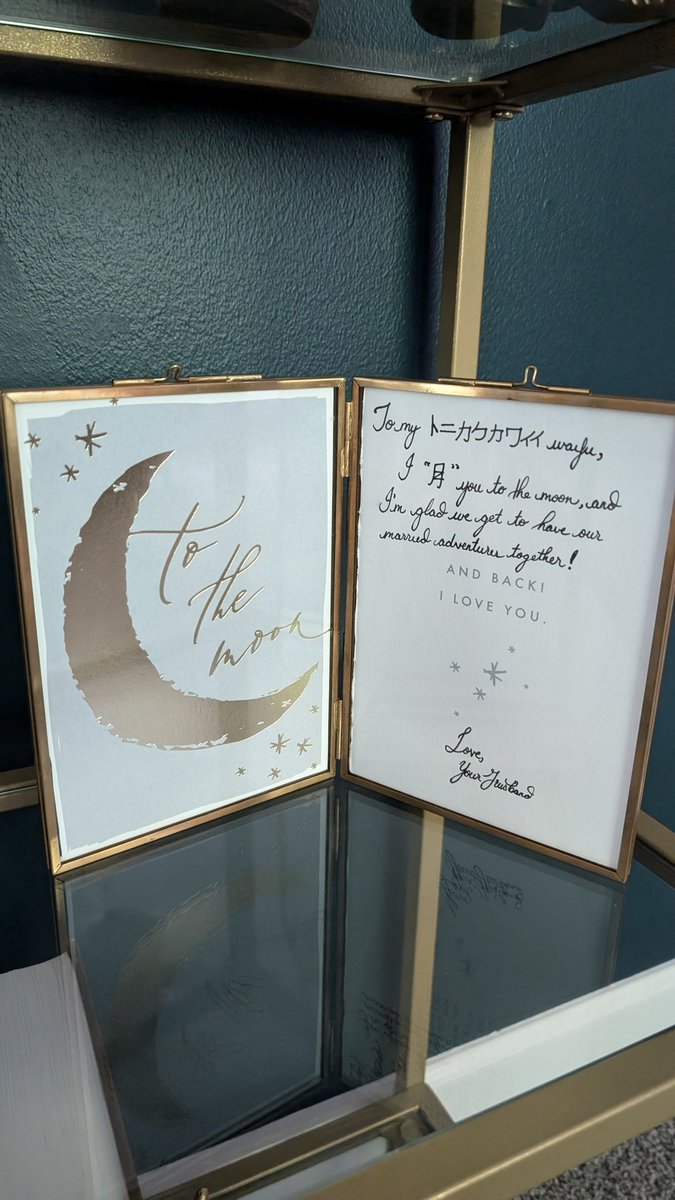 to
the
moon
To my トニカクカワイイ waifu,
I "月" you to the moon, and
I'm glad we get to have our
married adventures together!
AND BACK!
I LOVE YOU.
Love,
Your Husband